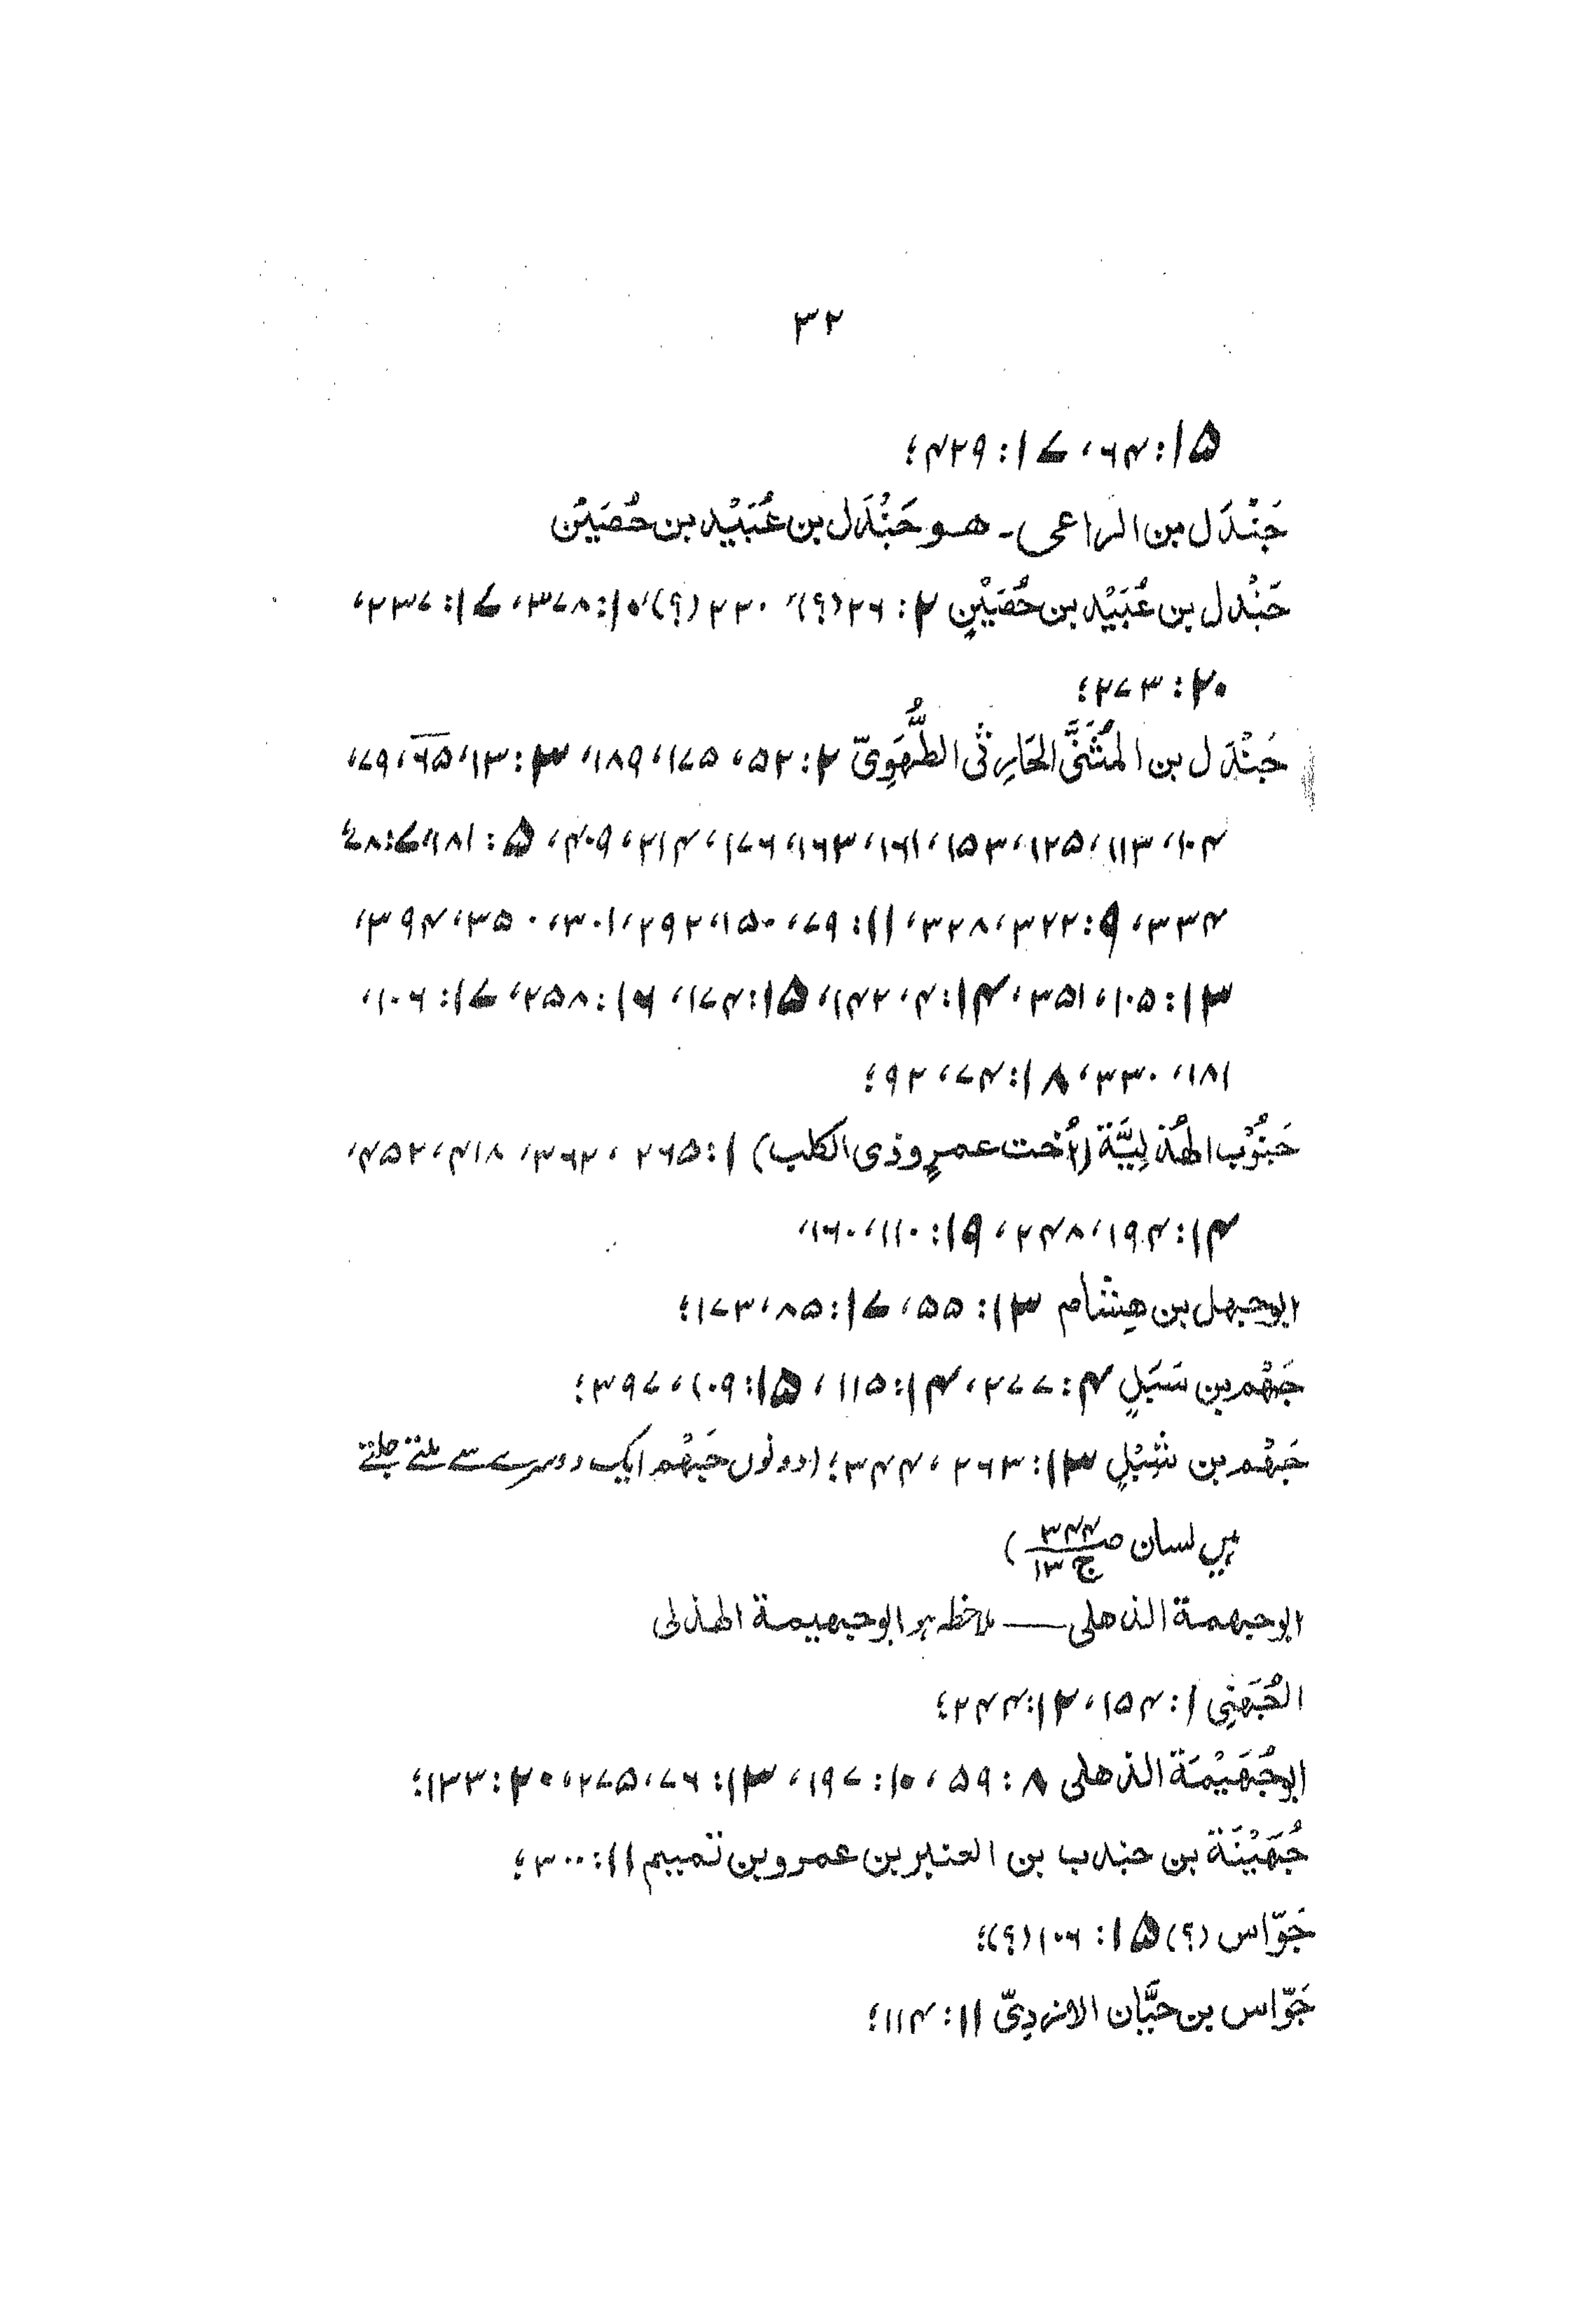 ۳۲
۱۵: ۶۴، ۱۷: ۴۲۹؛
جَنْدَل بن الراعی۔ هو جَنْدَل بن عُبَیْد بن حُصَیْن
جَنْدل بن عُبَیْد بن حُصَیْنٍ ۲: ۲۶(؟)، ۲۳۰(؟)، ۱۰: ۳۷۸، ۱۷: ۲۳۷،
۲۰: ۲۷۳؛
جَنْدَل بن المُثَنَّی الحَارِثی الطُّهَوِیّ ۲: ۵۲، ۱۷۵، ۱۸۹، ۳: ۱۳، ۶۵، ۷۹،
۱۰۴، ۱۱۳، ۱۲۵، ۱۵۳، ۱۶۱، ۱۶۳، ۱۷۶، ۲۱۴، ۴۰۹، ۵: ۱۸۱، ۷: ۴۸،
۳۳۴، ۹: ۳۲۲، ۳۲۸، ۱۱: ۷۹، ۱۵۰، ۲۹۲، ۳۰۱، ۳۵۰، ۳۹۴،
۱۳: ۱۰۵، ۳۵۱، ۱۴: ۴، ۱۴۲، ۱۵: ۱۷۴، ۱۶: ۲۵۸، ۱۷: ۱۰۶،
۱۸۱، ۳۳۰، ۱۸: ۷۴، ۹۲؛
جَنُوْب الهُذَلِیَّة (اُخت عمرٍو ذی الکلب) ۱: ۲۶۵، ۳۶۲، ۴۱۸، ۴۵۲،
۱۴: ۱۹۴، ۲۴۸، ۱۹: ۱۱۰، ۱۶۰،
ابوجهل بن هِشام ۱۳: ۵۵، ۱۷: ۸۵، ۱۷۳؛
جَهْم بن سَبَلٍ ۴: ۲۷۷، ۱۴: ۱۱۵، ۱۵: ۱۰۹، ۳۹۷؛
جَهْم بن شِبْلٍ ۱۳: ۲۶۳، ۳۴۴؛ (دونوں جَهْم ایک دوسرے سے ملتے جلتے
ہیں لسان صـ ۳۴۴ ج ۱۳)
ابوجهمة الذهلی ——— ملاحظہ ہو ابوجهیمة الهذلی
الجُهَنِی ۱: ۱۵۴، ۱۲: ۲۴۴؛
ابوجُهَیْمَة الذهلی ۸: ۵۹، ۱۰: ۱۹۷، ۱۳: ۷۶، ۲۷۵، ۲۰: ۱۳۳؛
جُهَیْنَة بن جندب بن العنبر بن عمرو بن تمیم ۱۱: ۳۰۰؛
جَوّاس (؟) ۱۵: ۱۰۶(؟)؛
جَوّاس بن حَیَّان الازدِیّ ۱۱: ۱۱۴؛